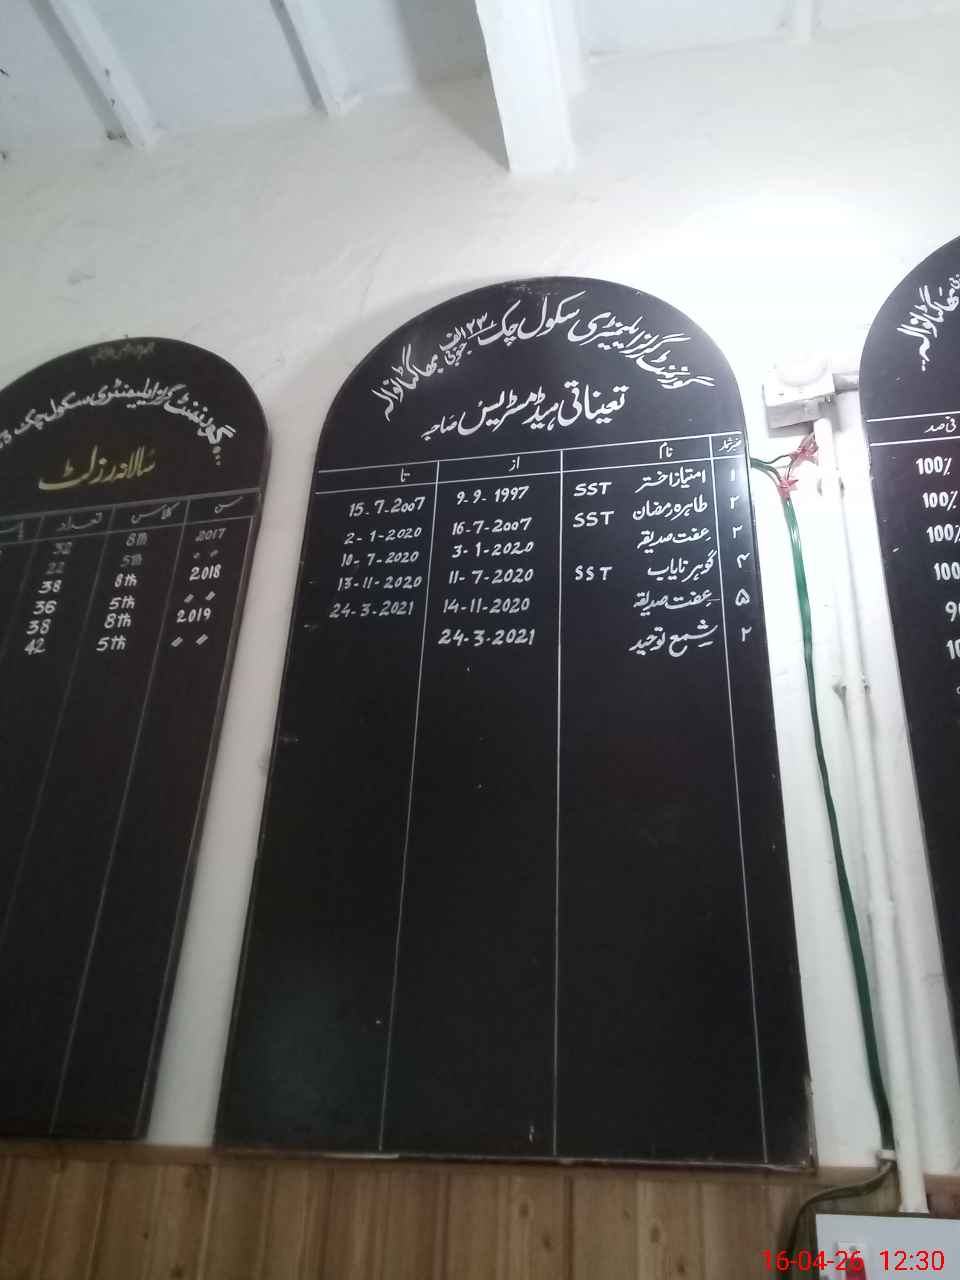 گورنمنٹ گرلز ایلیمنٹری سکول چک ۲۳ الف جنوبی بھاگٹانوالہ
تعیناتی ہیڈ مسٹریس صاحبہ
نمبر شمار نام از تا
۱ امتیاز اختر SST 9-9-1997 15-7-2007
۲ طاہرہ رمضان SST 16-7-2007 2-1-2020
۳ عفت صدیقہ 3-1-2020 10-7-2020
۴ گوہر نایاب SST 11-7-2020 13-11-2020
۵ عفت صدیقہ 14-11-2020 24-3-2021
۲ شمع توحید 24-3-2021
گورنمنٹ گرلز ایلیمنٹری سکول چک
سالانہ رزلٹ
سن کلاس تعداد
2017 8th 32
〃 〃 5th 22
2018 8th 38
〃 〃 5th 36
2019 8th 38
〃 〃 5th 42
بھاگٹانوالہ
فی صد
100%
100%
100%
100
16-04-26 12:30